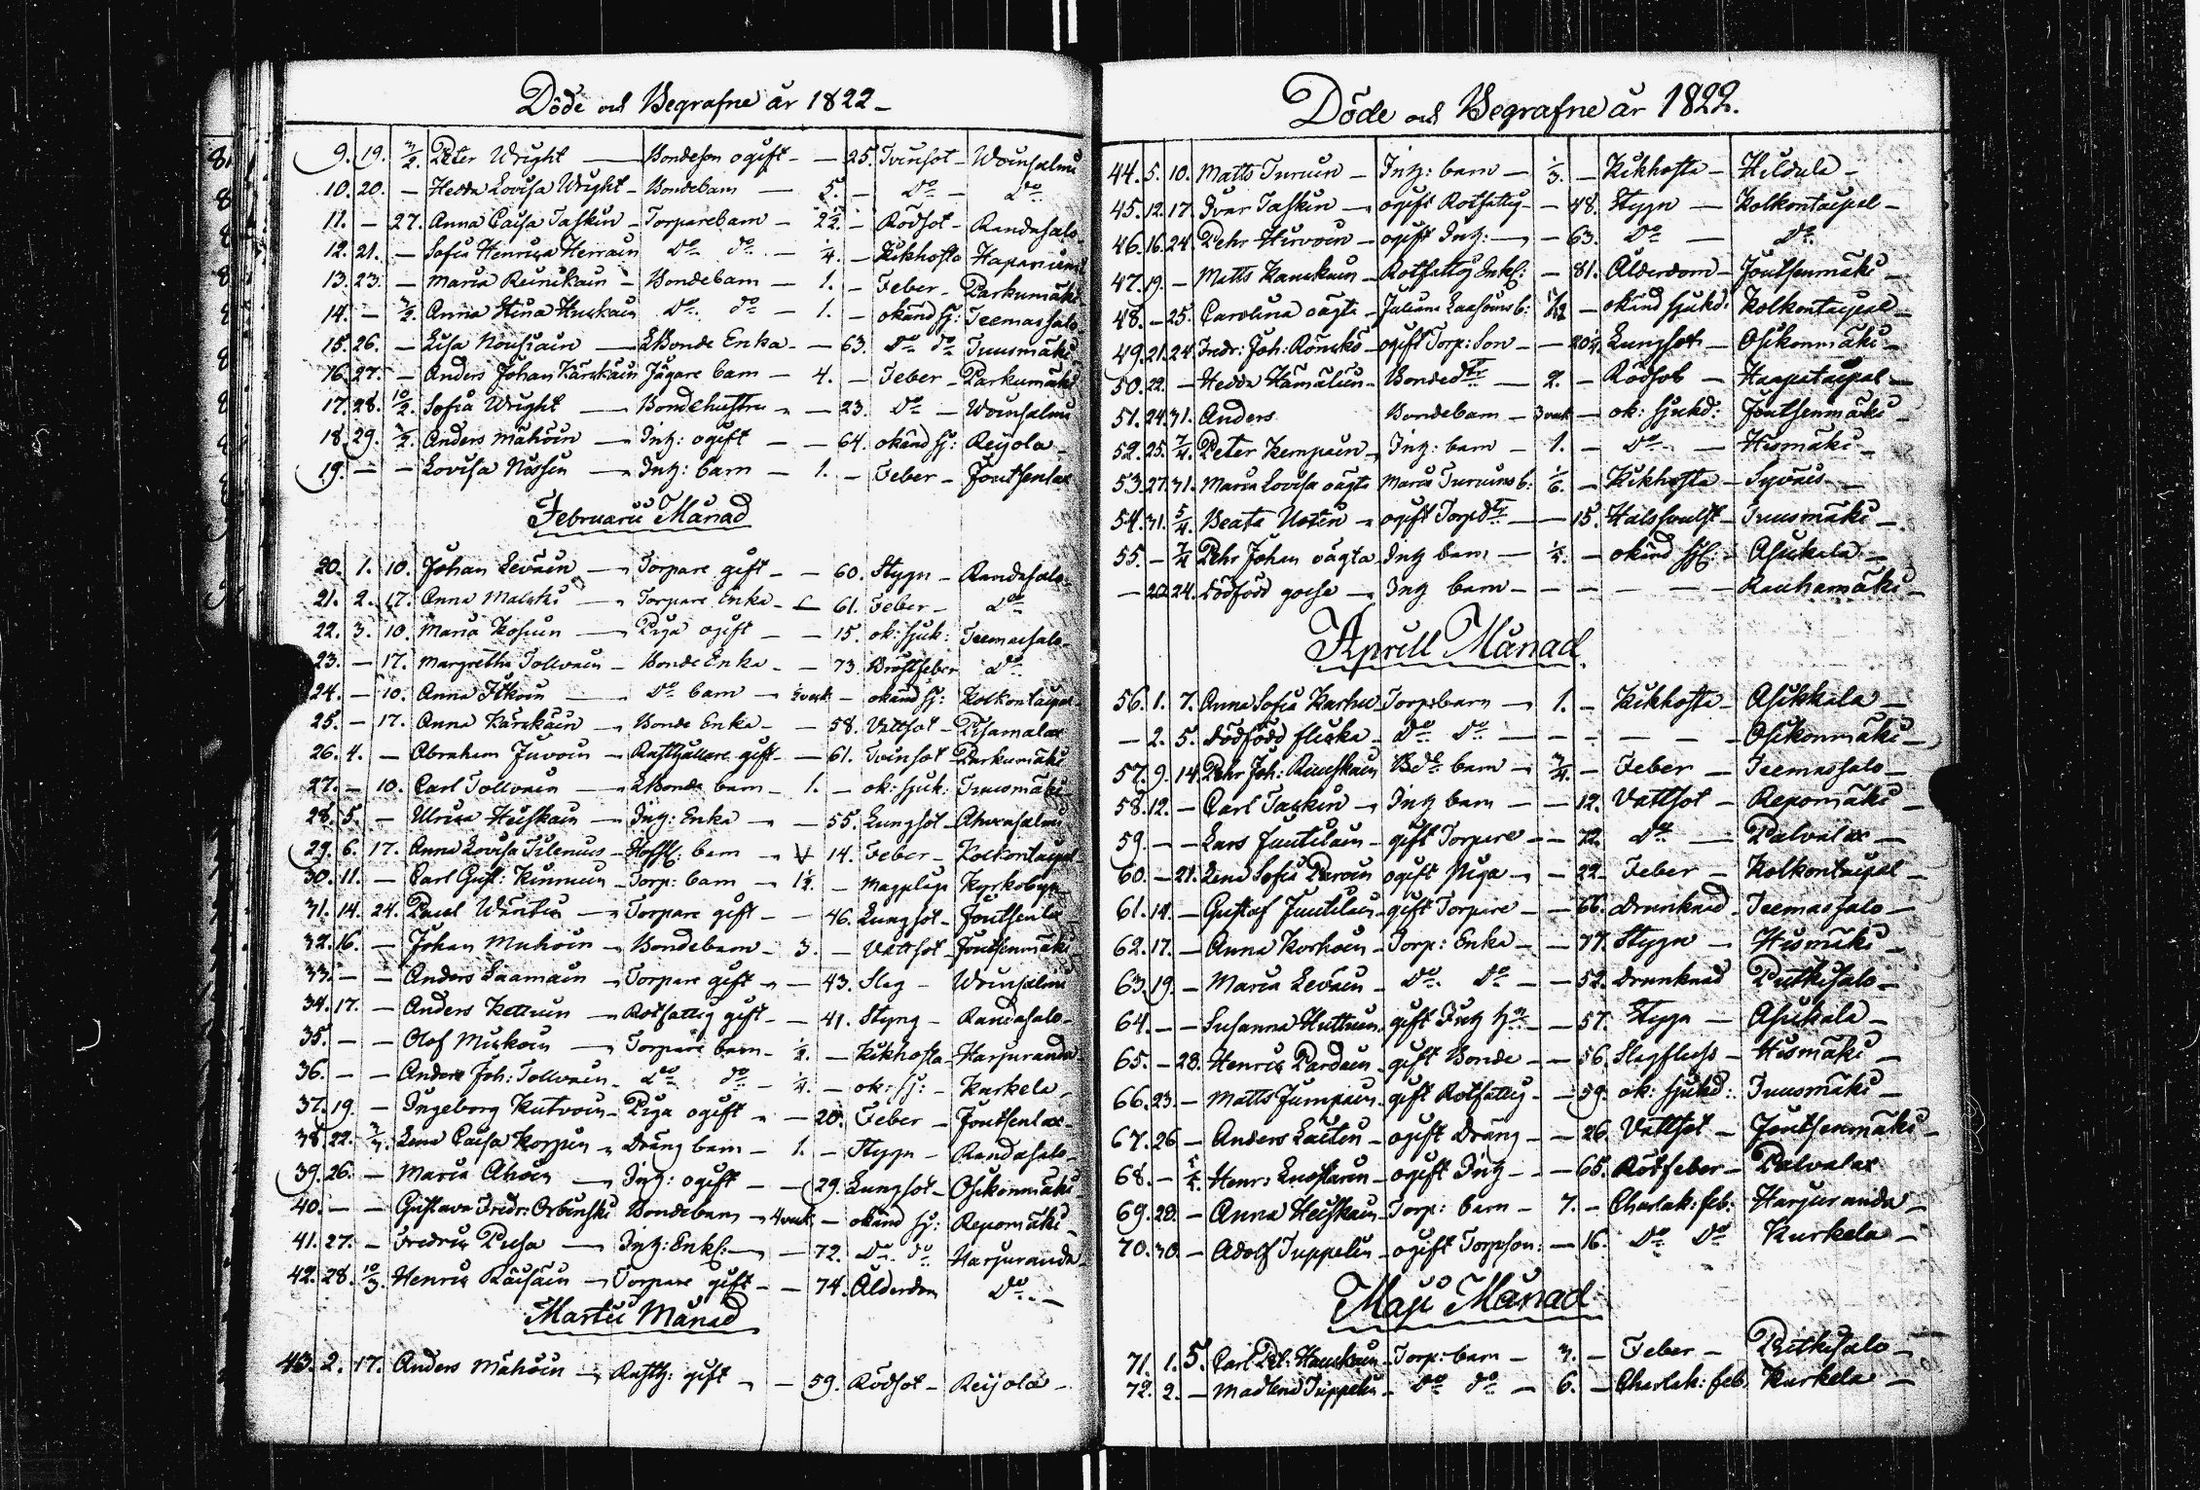 Döde och Begrafne år 1822 –
9. 19. 3/2. Peter Wright — Bondeson ogift – — 25. Tvinsot – Woinsalmi
10. 20. – Hedda Lovisa Wright – Bondebarn — 5. – Do – Do
11. – 27. Anna Caisa Taskin – Torparebarn – – Rödsot – Randasalo
12. 21. – Sofia Henrica Do do – 1/4. – Kikhosta
13. 23. – Maria Reinikain – Bondebarn – 1. – Feber – Parkumäki
14. – 3/2. Anna Stina Do do – 1. – okänd sj: Teemassalo
15. 26. – Lisa Nousiain — Bonde Enka – – 63. Do do Tuusmäki
16. 27. – Anders Johan Kärckäin Jägare barn – 4. – Feber – Parkumäki
17. 28. 10/2. Sofia Wright — Bondehustru – – 23. Do – Woinsalmi
18. 29. Anders Mähöin – Inh: ogift – – 64. okänd sj: Reijola –
19. – – Lovisa Nissin — Inh: barn – 1. – Feber – Joutsenlax
Februarii Månad
20. 1. 10. Johan Leväin — Torpare gift – – 60. Stygn – Randasalo
21. 2. 17. Anna Malski — Torpare Enka – 61. Feber – Do
22. 3. 10. Maria Kosuin — Piga ogift – – 15. ok: sjuk: Teemassalo
23. – 17. Margretha Tollvain – Bonde Enka – – 73. Bröstfeber Do
24. – 10. Anna Itkoin — Do barn – – okänd sj: Kolkontaipal
25. – 17. Anna Kärckäin – Bonde Enka – – 58. Vattsot – Pisamalax
26. 4. – Abraham Juvoin – Rusthållare gift – – 61. Tvinsot Parkumäki
27. – 10. Carl Tollvain — Bonde barn – 1. – ok: sjuk: Tuusmäki
28. 5. – Ulrica Heiskain – Inh: Enka – – 55. Lungsot – Ahvensalmi
29. 6. 17. Anna Lovisa Silenius – barn – 14. Feber – Kolkontaipal
30. 11. – Carl Gust: Kinnuin – Torp: barn – 1½. – Magplåga Kyrkobyn
31. 14. 24. Paul — Torpare gift – – 46. Lungsot – Joutsenlax
32. 16. – Johan Muhoin – Bondebarn – 3. – Vattsot – Joutsenmäki
33. – – Anders Laamain – Torpare gift – – 43. Slag – Woinsalmi
34. 17. – Anders Kettuin – Rotfattig gift – – 41. Styng – Randasalo –
35. – – Olof Miskoin — Torpare barn – ½. – Kikhosta – Harjuranda
36. – – Anders Joh: Tollvain – Do do – 1/4. – ok: sj: – Kurkela –
37. 19. – Ingeborg Kutvoin – Piga ogift – – 20. Feber – Joutsenlax –
38. 22. 3/3. Lena Caisa Korpin – Dräng barn – 1. – Stygn – Randasalo –
39. 26. – Maria Ahoin — Inh: ogift – – 29. Lungsot – Osikonmäki
40. – – Gustava Fredr: Orbinski Bondebarn – 4 veck – okänd sj: Repomäki
41. 27. – Fredric Pusa — Inh: Enkl: – – 72. Do do Harjuranda
42. 28. 10/3. Henric Räisäin – Torpare gift – – 74. Ålderdom Do –
Martii Månad
43. 2. 17. Anders Mähöin – Rusth: gift – – 59. Rödsot – Reijola –
Döde och Begrafne år 1822.
44. 5. 10. Matts Turuin – Inh: barn – 1/3. – Kikhosta – Hildula –
45. 12. 17. Ivar Taskin – ogift Rotfattig – – 48. Stygn — Kolkontaipal –
46. 16. 24. Pehr Hirvoin – ogift Inh: – – 63. Do — Do
47. 19. – Matts Kauckain – Rotfattig Enkl: – 81. Ålderdom – Joutsenmäki –
48. – 25. Carolina oägta – b: – okänd sjukd: Kolkontaipal –
49. 21. 24. Fredr: Joh: Röncko – ogift Torp: Son – – Lungsot – Osikonmäki –
50. 22. – Hedda Hämäläin – Bonded:tr – 2. – Rödsot – Haapataipal –
51. 24. 31. Anders Bondebarn – 3 veck – ok: sjukd: Joutsenmäki –
52. 25. 7/4. Peter Kempain – Inh: barn – 1. – Do – Hismäki –
53. 27. 31. Maria Lovisa oägta Maria Turuins b: 1/6. – Kikhosta –
54. 31. 5/4. Beata Usten – ogift Torpd:tr – – 15. Halssvulst – Tuusmäki –
55. – 7/4. Pehr Johan oägta Inh barn – – okänd sj: – Asikala –
– 20 24. dödfödd gosse – Inh barn – – – – – Rauhamäki –
Aprill Månad
56. 1. 7. Anna Sofia Karhu – Torparebarn – 1. – Kikhosta – Asikkala –
– 2. 5. dödfödd flicka – Do Do – – – – – Osikonmäki –
57. 9. 14. Pehr Joh: barn – 3/4. – Feber – Teemassalo –
58. 12. – Carl Taskin – Inh barn – – 12. Vattsot – Repomäki –
59. – – Lars Juutilain – gift Torpare – – 72. Do – Palvalax –
60. – 21. Lena Sofia Parvoin ogift Piga – – 22. Feber – Kolkontaipal –
61. 14. – Gustaf Juutilain – gift Torpare – – 66. drunknad – Teemassalo –
62. 17. – Anna Korhoin – Torp: Enka – – 77. Stygn – Hismäki –
63. 19. – Maria Leväin – Do Do – – 52. Drunknad Putkisalo –
64. – – Susanna Huttuin gift Inh – 57. Stygn – Asikala –
65. – 28. Henric Pardain – gift Bonde – – 56. Slagfluss – Hismäki –
66. 23. – Matts Jumpain – gift Rotfattig – – 59. ok: sjukd: Tuusmäki –
67. 26. – Anders Laitin – ogift Dräng – – 26. Vattsot – Joutsenmäki –
68. – Henr: – ogift Inh – – 65. Rötfeber – Palvalax
69. 28. – Anna Heiskain – Torp: barn – 7. – Charlak: feb: Harjuranda –
70. 30. – Adolf Tuppelin – ogift Torpson: – 16. Do Do Kurkela –
Maji Månad
71. 1. 5. Carl Pet: Hauskain – Torp: barn – 3. – Feber – Pitkesalo –
72. 2. – Madlena Tuppelin – Do do – 6. – Charlak: feb: Kurkela –